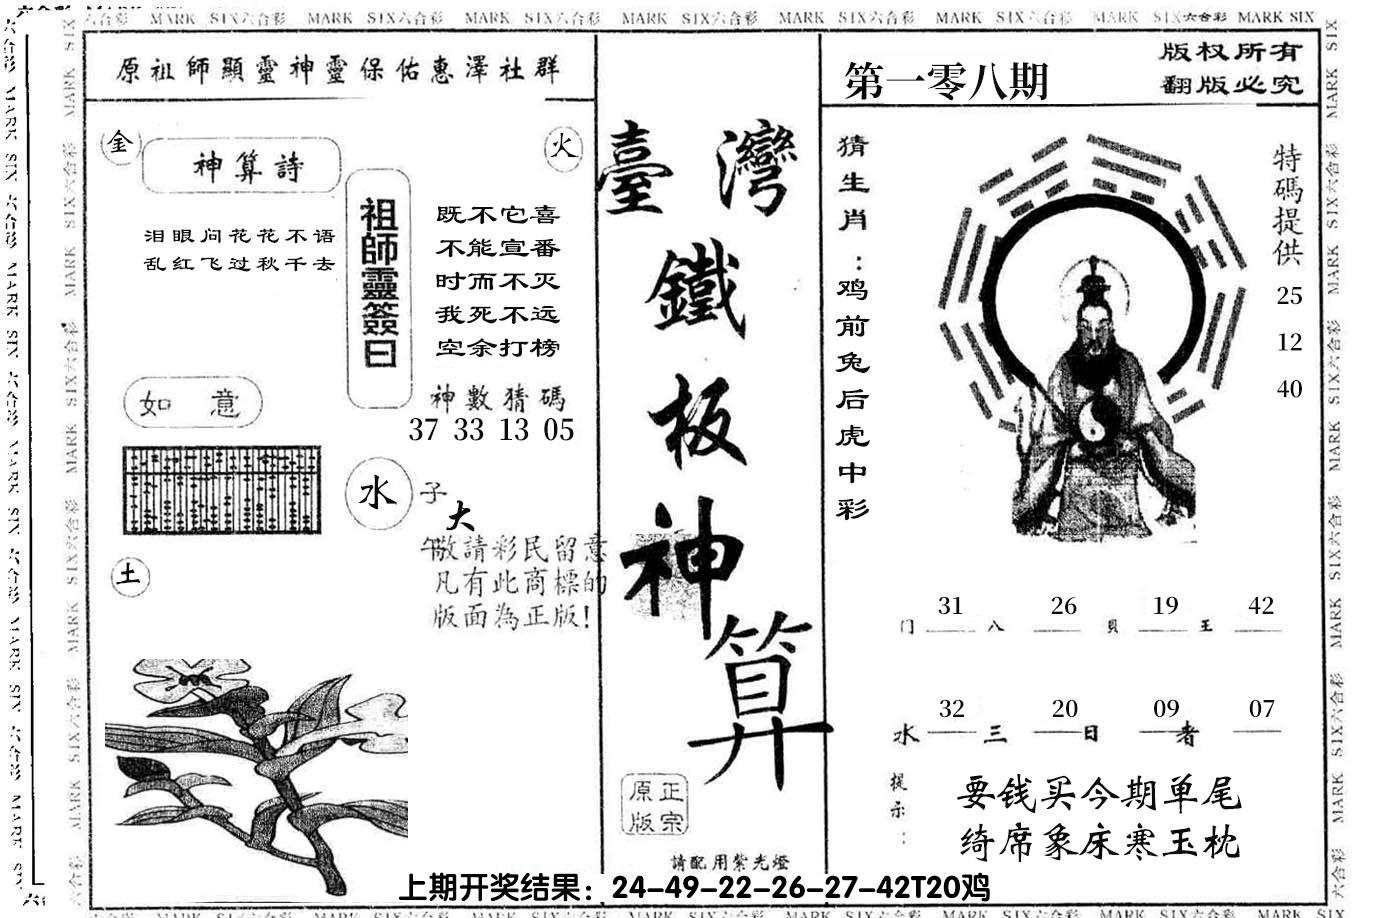 六合彩 MARK SIX六合彩 MARK SIX六合彩 MARK SIX六合彩 MARK SIX六合彩 MARK SIX六合彩 MARK SIX六合彩 MARK SIX六合彩 MARK SIX
原祖師顯靈神靈保佑惠澤社群
金
火
神算詩
泪眼问花花不语
乱红飞过秋千去
祖師靈簽曰
既不它喜
不能宣番
时而不灭
我死不远
空余打榜
如意
神數猜碼
37 33 13 05
水
子
大
午
敬請彩民留意
凡有此商標的
版面為正版!
土
臺灣
鐵
板
神
算
正宗
原版
請配用紫光燈
第一零八期
版权所有
翻版必究
猜生肖：鸡前兔后虎中彩
特碼提供
25
12
40
31 26 19 42
门 八 貝 王
32 20 09 07
水 三 日 者
提示：
要钱买今期单尾
绮席象床寒玉枕
上期开奖结果：24-49-22-26-27-42T20鸡